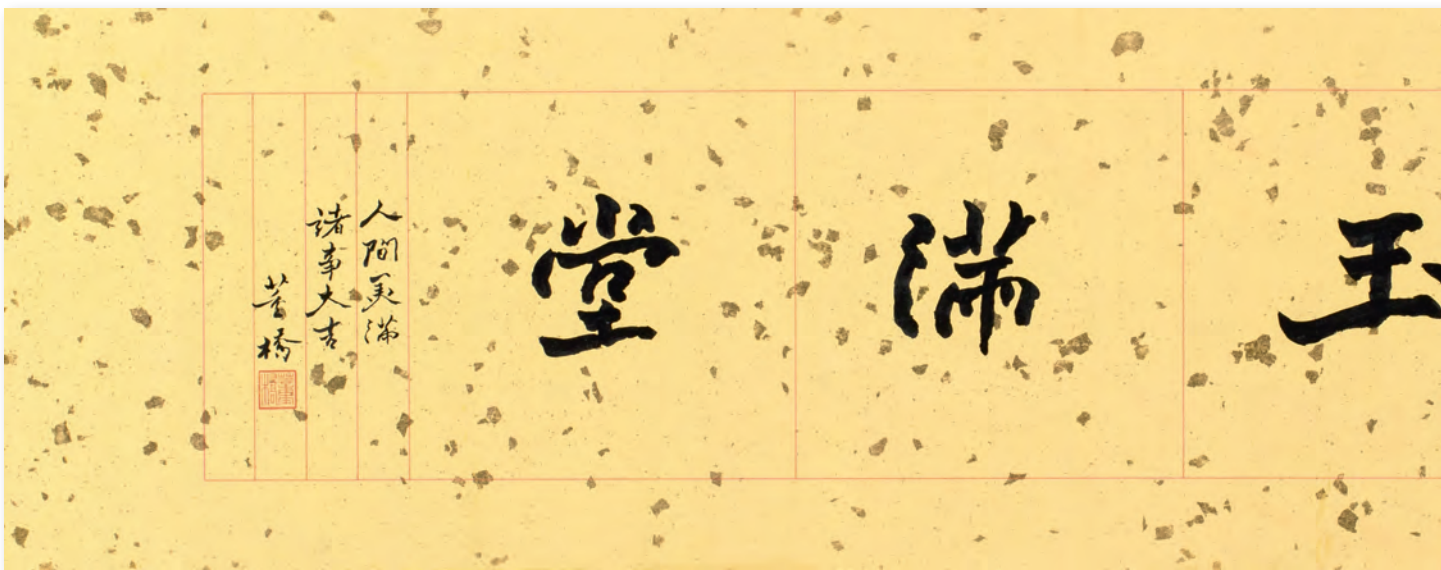 玉滿堂
人間美滿
諸事大吉
董橋